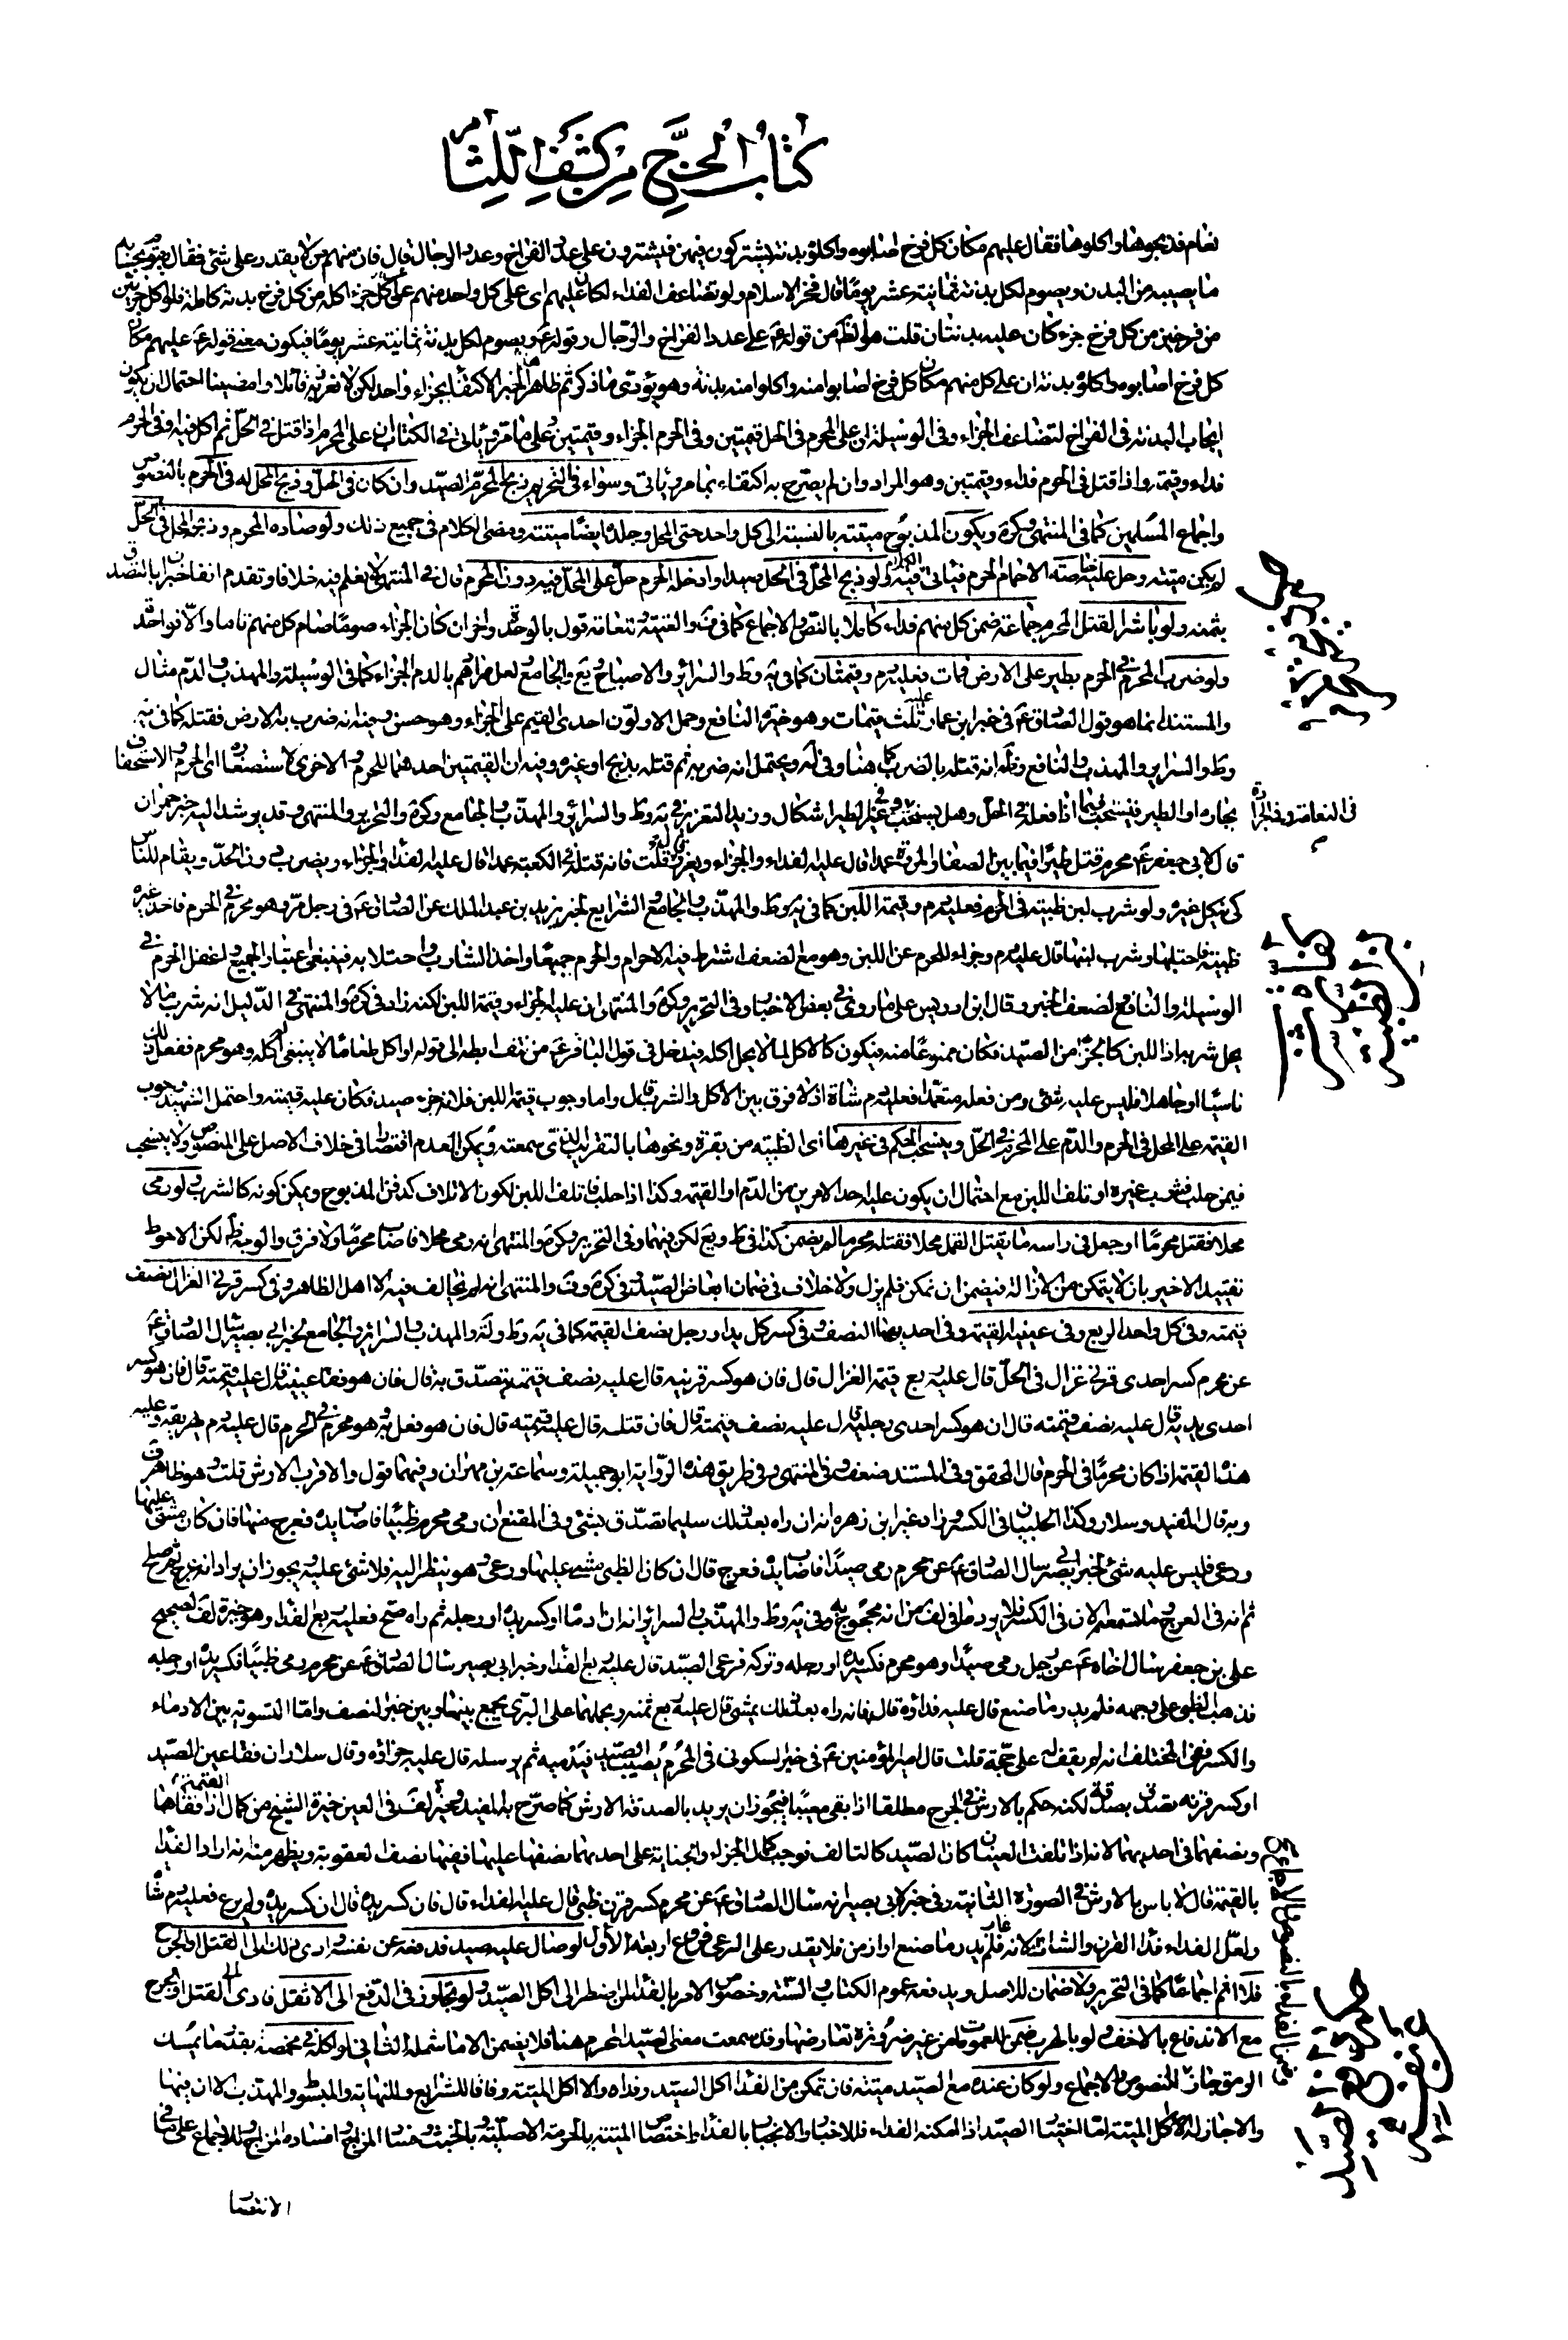 كتاب الحج من كشف اللثام
نعام فذبحوها واكلوها فقال عليهم مكان كل فرخ اصابوه واكلوه بدنة يشتركون فيهن فيشترون على عدد الفراخ وعدد الرجال قال فان منهم من لا يقدر على شئ فقال يقوم بحساب
ما يصيبه من البدن ويصوم لكل بدنة ثمانية عشر يوما قال فخر الاسلام ولو تضاعف الفداء لكان عليهم اى على كل واحد منهم عن كل جزء اكله من كل فرخ بدنة كاملة فلو اكل جزئين
من فرخين من كل فرخ جزء كان عليه بدنتان قلت هو اظهر من قوله ع على عدد الفراخ والرجال وقوله ع ويصوم لكل بدنة ثمانية عشر يوما فيكون معنى قوله ع عليهم مكان
كل فرخ اصابوه واكلوه بدنة ان على كل منهم مكان كل فرخ اصابوا منه واكلوا منه بدنة وهو يؤدى ما ذكر ثم ظاهر الخبر الاكتفاء بجزاء واحد لكن لا نعرف به قائلا وامضينا احتمال ان يكون
ايجاب البدنة فى الفراخ لتضاعف الجزاء وفى الوسيلة ان على المحرم فى الحل قيمتين وفى الحرم الجزاء وقيمتين وعلى ما مر ويأتى فى الكتاب ان على المحرم اذا قتل فى الحل ثم اكل فيه او فى الحرم
فداء وقيمة واذا قتل فى الحرم فداء وقيمتين وهو المراد وان لم يصرح به اكتفاء بما مر ويأتى وسواء فى التحريم ذبح المحرم الصيد وان كان فى الحل وذبح المحل له فى الحرم بالنصوص
واجماع المسلمين كما فى المنتهى وكره ويكون المذبوح ميتة بالنسبة الى كل واحد حتى المحل وجلده ايضا ميتة ومضى الكلام فى جميع ذلك ولو صاده المحرم وذبحه المحل فى الحل
لم يكن ميتة وحل عليه خاصة الاحمام الحرم فيأتى الكلام فيه ولو ذبح المحل فى الحل صيدا وادخله الحرم حل على المحل فيه دون المحرم قال فى المنتهى لا نعلم فيه خلافا وتقدم انفا خبران بالتصدق
بثمنه ولو باشر القتل المحرم جماعة ضمن كل منهم فداء كاملا بالنص والاجماع كما فى ف والغنية وللعامة قول بالوحدة واخر ان كان الجزاء صوما صام كل منهم تاما والا فواحدة
ولو ضرب المحرم فى الحرم بطير على الارض فمات فعليه دم وقيمتان كما فى يه وط والسرائر والاصباح ويع والجامع ولعل مرادهم بالدم الجزاء كما فى الوسيلة والمهذب والدم مثال
والمستند انما هو قول الصادق ع فى خبر ابن عمار عليه ثلث قيمات وهو خيرة النافع وحمل الاولون احدى القيم على الجزاء وهو حسن ويمينه انه ضرب به الارض فقتله كما فى يه
وط والسرائر والمهذب والنافع ويع انه قتله بالضرب كما هنا وفى كره ويحتمل انه ضربه ثم قتله بذبح او غيره وفيه ان القيمتين احدهما للحرم والاخرى لاستصغاره اى الحرم والاستخفاف
بجاره او الطير فيستحب فيما اذا فعله فى الحل وهل يستحب فى غير الطير اشكال وزيد التعزير فى يه وط والسرائر والمهذب والجامع وكره والتحرير والمنتهى وقد يرشد اليه خبر حمران
قال لابى جعفر ع محرم قتل طيرا فيما بين الصفا والمروة عمدا قال عليه الفداء والجزاء ويعزر قال قلت فانه قتله فى الكعبة عمدا قال عليه الفداء والجزاء ويضرب دون الحد ويقام للناس
كى ينكل غيره ولو شرب لبن ظبية فى الحرم فعليه دم وقيمة اللبن كما فى يه وط والمهذب والجامع والشرايع لخبر يزيد بن عبد الملك عن الصادق ع فى رجل مر وهو محرم فى الحرم فاخذ عنز
ظبية فاحتلبها وشرب لبنها قال عليه دم وجزاء للحرم عن اللبن وهو مع الضعف اشترط فيه الاحرام والحرم جميعا واخذ الشارب واحتلابه فينبغى اعتبار الجميع اغفل الحرم فى
الوسيلة والنافع لضعف الخبر وقال ابن ادريس على ما روى فى بعض الاخبار وفى التحرير وكره والمنتهى ان عليه الجزاء وقيمة اللبن لكنه زاد فى كره والمنتهى فى الدليل انه شرب ما لا
يحل شربه اذ اللبن كالجزء من الصيد فكان ممنوعا منه فيكون كالاكل لما لا يحل اكله فيدخل فى قول الباقر ع من نتف ابطه الى قوله او اكل طعاما لا ينبغى اكله وهو محرم ففعل ذلك
ناسيا او جاهلا فليس عليه شئ ومن فعله متعمدا فعليه دم شاة اذ لا فرق بين الاكل والشرب قال واما وجوب قيمة اللبن فلانه جزء صيد فكان عليه قيمته واحتمل الشهيد وجوب
القيمة على المحل فى الحرم والدم على المحرم فى الحل وينسحب الحكم فى غيرها اى الظبية من بقرة ونحوها بالتقريب الذى سمعته ويمكن العدم اقتصارا فى خلاف الاصل على المنصوص ولا ينسحب
فيمن حلب فشرب غيره او تلف اللبن مع احتمال ان يكون عليه احد الامرين من الدم او القيمة وكذا اذا حلب فاتلف اللبن لكون الاتلاف كدفن المذبوح ويمكن كونه كالشرب ولو رمى
محلا فقتل محرما او جعل فى راسه ما يقتل القمل محلا فقتله محرما لم يضمن كذا فى ط ويع لكن فيهما وفى التحرير وكره والمنتهى انه رمى محلا فاصاب محرما ولا فرق والوجه ظاهر لكن الاحوط
تقييد الاخير بان لا يتمكن من الازالة فيضمن ان تمكن فلم يزل ولا خلاف فى ضمان ابعاض الصيد كما فى كره وف والمنتهى انه لم يخالف فيه الا اهل الظاهر وفى كسر قرنى الغزال نصف
قيمته وفى كل واحد الربع وفى عينيه القيمة وفى احديهما النصف وفى كسر كل يد او رجل نصف القيمة كما فى يه وط ولة والمهذب والسرائر والجامع لخبر ابى بصير سال الصادق ع
عن محرم كسر احدى قرنى غزال فى الحل قال عليه ربع قيمة الغزال قال فان هو كسر قرنيه قال عليه نصف قيمته يتصدق به قال فان هو فقأ عينيه قال عليه قيمته قال فان هو كسر
احدى يديه قال عليه نصف قيمته قال ان هو كسر احدى رجليه قال عليه نصف قيمته قال فان قتله قال عليه قيمته قال فان هو فعل به وهو محرم فى الحرم قال عليه دم يهريقه وعليه
هذه القيمة اذا كان محرما فى الحرم قال المحقق وفى المستند ضعف وفى المنتهى وفى طريق هذه الرواية ابو جميلة وسماعة بن مهران وفيهما قول والاقرب الارش قلت وهو ظاهر ف
وبه قال المفيد وسلار وكذا الحلبيان فى الكسر وزاد غير ابن زهره انه ان راه بعد ذلك سليما تصدق بشئ وفى المقنع ان رمى محرم ظبيا فاصاب يده فعرج منها فان كان مشى عليها
ورعى فليس عليه شئ لخبر ابى بصير سال الصادق ع عن محرم رمى صيدا فاصاب يده فعرج قال ان كان الظبى مشى عليها ورعى وهو ينظر اليه فلا شئ عليه ويجوز ان يراد انه عرج ثم صلح
ثم انه فى العرج ما لاستمعه الان فى الكسر فلا يرد ما فى لف من انه محجوج به وفى يه وط والمهذب والسرائر انه ان ادما او كسر يده او رجله ثم راه صح فعليه ربع الفداء وهو خيرة لف لصحيح
على بن جعفر سال اخاه ع عن رجل رمى صيدا وهو محرم فكسر يده او رجله وتركه فرعى الصيد قال عليه ربع الفداء وخبر ابى بصير سال الصادق ع عن محرم رمى ظبيا فكسر يده او رجله
فذهب الظبى على وجهه فلم يدر ما صنع قال عليه فداؤه قال فانه راه بعد ذلك يمشى قال عليه ربع ثمنه وبحملهما على البرئ يجمع بينهما وبين خبر النصف واما التسوية بين الادماء
والكسر ففى المختلف انه لم يقف له على حجة قلت قال امير المؤمنين ع فى خبر السكونى فى المحرم يصيب الصيد فيدميه ثم يرسله قال عليه جزاؤه وقال سلار ان فقأ عين الصيد
او كسر قرنه تصدق بصدقة لكنه حكم بالارش فى الجرح مطلقا اذا بقى معيبا فيجوز ان يريد بالصدقة الارش كما صرح به المفيد وخيرة لف فى العين خيرة الشيخ من كمال القيمة اذا فقأها
ونصفها فى احديهما لانه اذا تلفت العينان كان الصيد كالتالف فوجب كمال الجزاء والجناية على احدهما نصفها عليهما ففيها نصف العقوبة ويظهر منه انه اراد الفداء
بالقيمة قال لا باس بالارش فى الصورة الثانية وفى خبر لابى بصير انه سال الصادق ع عن محرم كسر قرن ظبى قال عليه الفداء قال فان كسر يده قال ان كسر يده ولم يرع فعليه دم شاة
ولعل الفداء فداء القرن والشاة لانه غاب فلم يدر ما صنع او ازمن فلا يقدر على الرعى فروع اربعة الاول لو صال عليه صيد فدفعه عن نفسه وادى ذلك الى القتل او الجرح
فلا اثم اجماعا كما فى التحرير ولا ضمان للاصل ويدفعه عموم الكتاب والسنة وخصوص الامر بالفداء لمن ضطر الى اكل الصيد ولو تجاوز فى الدفع الى الاثقل فادى الى القتل او الجرح
مع الاندفاع بالاخف ولو بالهرب ضمن للعمومات من غير ضرورة تعارضها وقد سمعت معنى الصيد المحرم هنا فلا يضمن الا ما شمله الثانى لو اكله فى مخمصة بقدر ما يمسك
الرمق جاز للنصوص والاجماع ولو كان عنده مع الصيد ميتة فان تمكن من الفداء اكل الصيد وفداه والا اكل الميتة وفاقا للشرايع وللنهاية والمبسوط والمهذب الا ان فيها
والا جاز له الاكل الميتة اما اختيار الصيد اذا امكنه الفداء فللاخبار والانجبار بالفداء واختصاص الميتة بالحرمة الاصلية وبالخبث وفساد المزاج وافساده المزاج وللاجماع على ما فى
الانتصار
فى النعامة وفى الجزاء